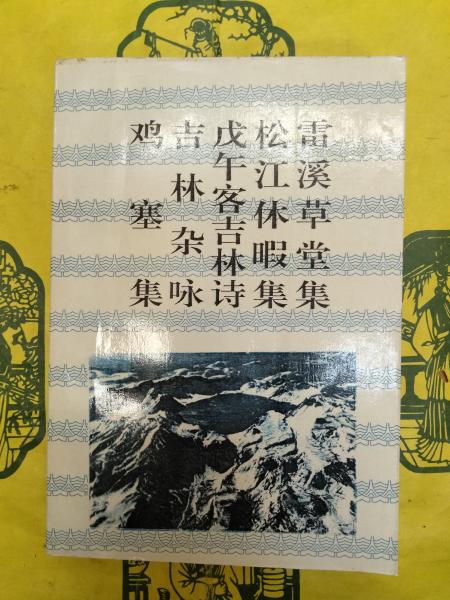 雷溪草堂集
松江休暇集
戊午客吉林诗
吉林杂咏
鸡塞集